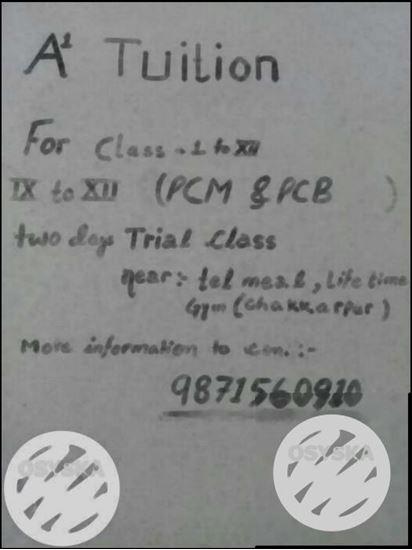 A¹ Tuition
For Class - 1 to XII
IX to XII (PCM & PCB )
two days Trial Class
near :- tel meal, Life time
Gym (Chakkarpur)
More information to con. :-
9871560910
OSYSKA
OSYSKA